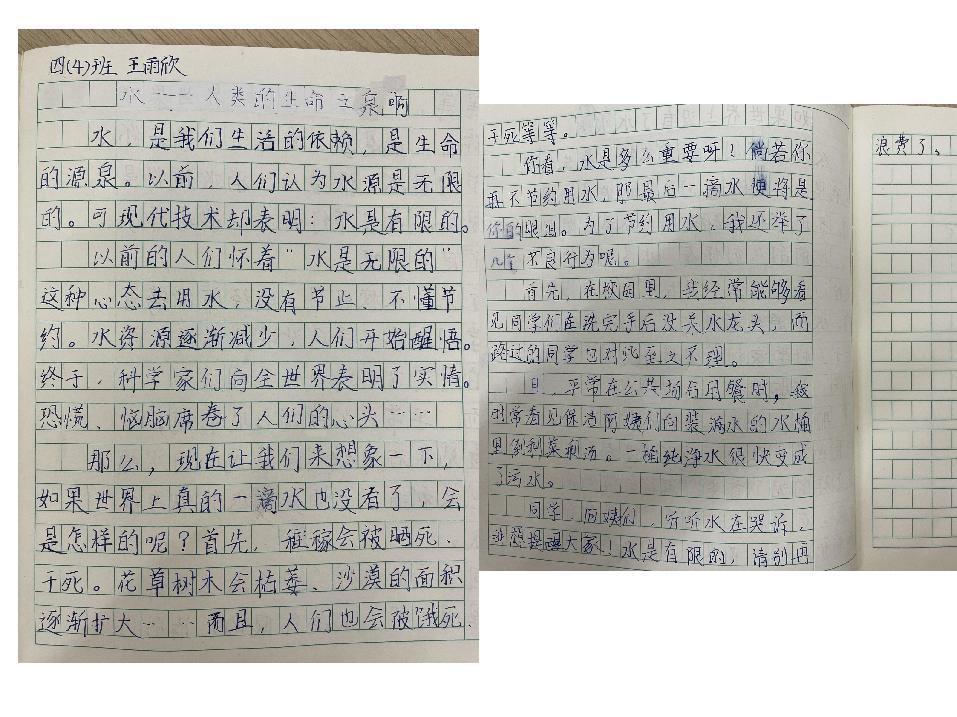 四(4)班 王雨欣
水——人类的生命之泉啊
水，是我们生活的依赖，是生命
的源泉。以前，人们认为水源是无限
的。可现代技术却表明：水是有限的。
以前的人们怀着“水是无限的”
这种心态去用水，没有节止、不懂节
约。水资源逐渐减少，人们开始醒悟。
终于，科学家们向全世界表明了实情。
恐慌、恼脑席卷了人们的心头……
那么，现在让我们来想象一下，
如果世界上真的一滴水也没有了，会
是怎样的呢？首先，稼会被晒死、
干死。花草树木会枯萎、沙漠的面积
逐渐扩大……而且，人们也会被饿死、
干死等等。
你看，水是多么重要呀！倘若你
再不节约用水，那最后一滴水便将是
你的眼泪。为了节约用水，我还举了
几个不良行为呢。
首先，在校园里，我经常能够看
见同学们在洗完手后没关水龙头，而
路过的同学也对此至之不理。
且，平常在公共场合用餐时，我
时常看见保洁阿姨们向装满水的水桶
里倒剩菜剩汤。一桶纯净水很快变成
了污水。
同学，阿姨们，听听水在哭诉，
我想提醒大家！水是有限的，请别再
浪费了。